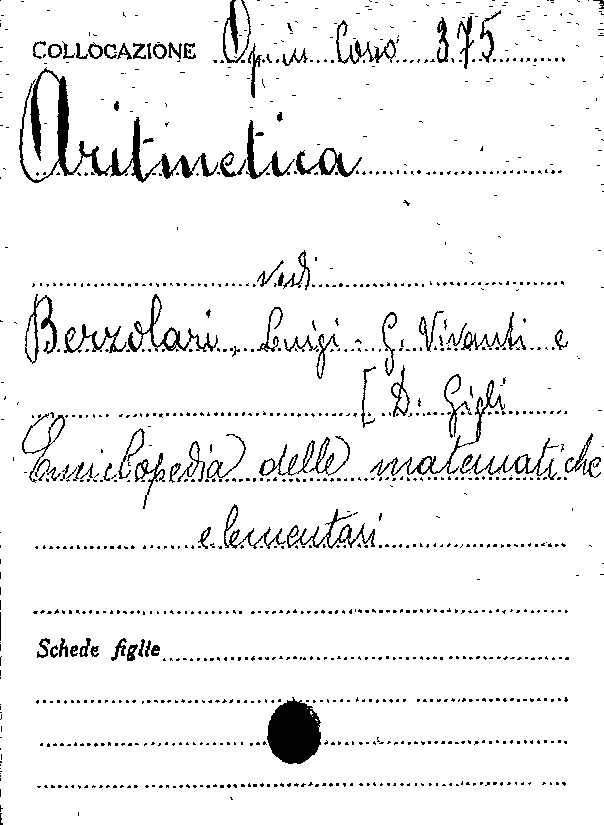 COLLOCAZIONE Op. in Corso 375
Aritmetica
vedi
Berzolari, Luigi - G. Vivanti e
[ D. Gigli
Enciclopedia delle matematiche
elementari
Schede figlie